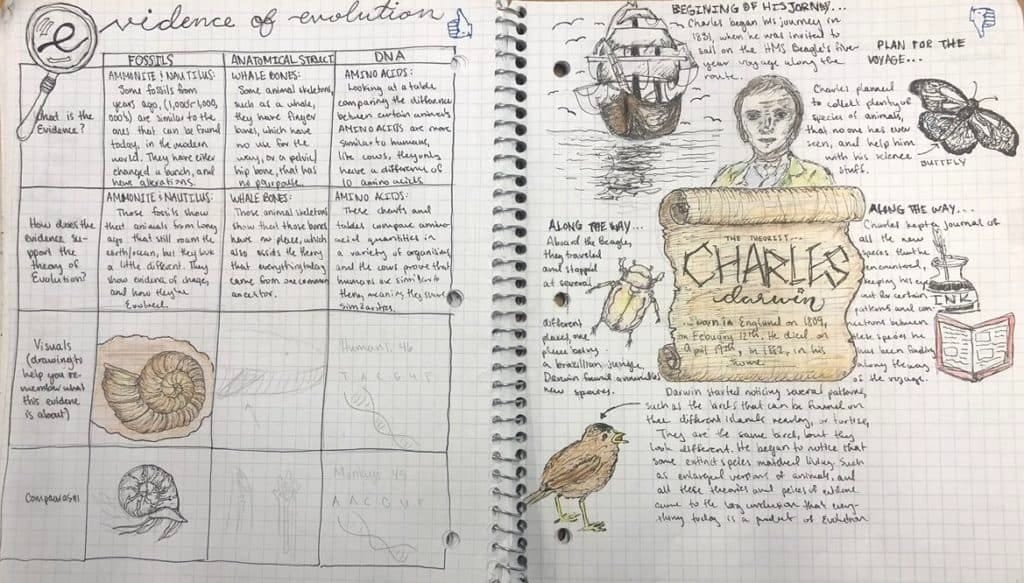 evidence of evolution
FOSSILS
ANATOMICAL STRUCT
DNA
What is the
Evidence?
AMMONITE & NAUTILUS:
Some fossils from
years ago, (1,000s-1,000,
000's) are similar to the
ones that can be found
today, in the modern
world. They have either
changed a bunch, and
have alterations.
WHALE BONES:
Some animal skeletons,
such as a whale,
they have finger
bones, which have
no use for the
way, or a pelvic/
hip bone, that has
no purpose.
AMINO ACIDS:
Looking at a table
comparing the difference
between certain animals
AMINO ACIDS are more
similar to humans,
like cows, they only
have a difference of
10 amino acids
How does the
evidence su-
pport the
theory of
Evolution?
AMMONITE & NAUTILUS:
Those fossils show
that animals from long
ago that still roam the
earth/ocean, but they look
a little different. They
show evidence of change,
and how they've
Evolved.
WHALE BONES:
Those animal skeletons
show that those bones
have no place, which
also assists the theory
that everything today
came from one common
ancestor.
AMINO ACIDS:
These charts and
tables compare amino
acid quantities in
a variety of organisms
and the cows prove that
humans are similar to
them, meaning they share
similarities.
Visuals
(drawings to
help you re-
member what
this evidence
is about)
Human: 46
T A C G U F
Comparason
45
A A C G U F
BEGINING OF HIS JORNEY...
Charles began his journey in
1831, when he was invited to
sail on the HMS Beagle's five-
year voyage along the
route.
PLAN FOR THE
VOYAGE...
Charles planned
to collect plenty of
species of animals,
that no one has ever
seen, and help him
with his science
stuff.
BUTTFLY
ALONG THE WAY...
Aboard the Beagle,
they traveled
and stopped
at several
different
places, one
place being
a brazilian, jungle,
Darwin found
new species.
THE THEORIST...
CHARLES
darwin
...born in England on 1809,
on Febuary 12th. He died on
April 19th, in 1882, in his
home
ALONG THE WAY...
Charles kept a journal of
all the new
species that he
encountered,
keeping his eye
out for certain
patterns and con-
nections between
these species he
has been finding
along the way
of the voyage.
INK
Darwin started noticing several patterns,
such as the birds that can be found on
three different islands nearby, or tortise,
They are the same bird, but they
look different. He began to notice that
some extinct speies matched living such
as enlarged versions of animals, and
all these theories and peices of evidence
came to the long conclusion that every-
thing today is a product of Evolution